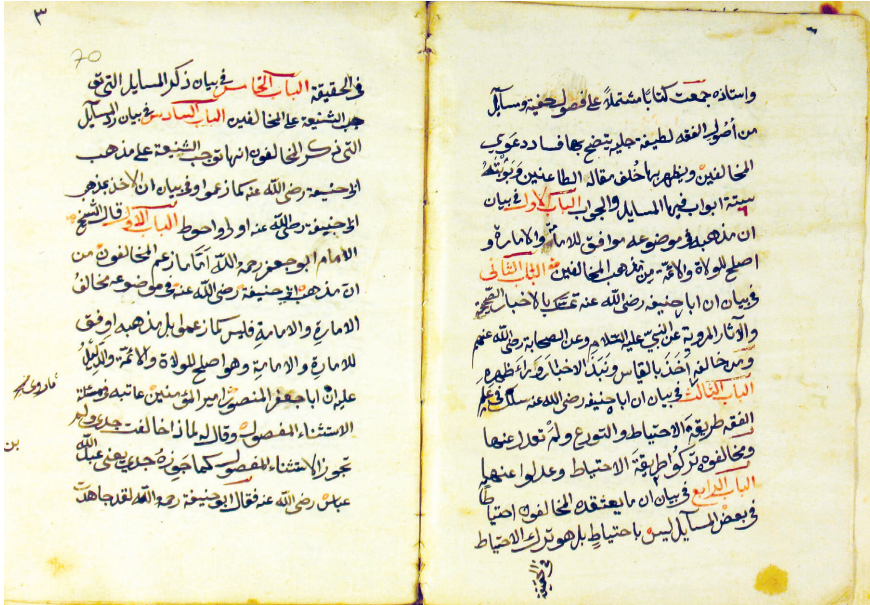 واستاذه جمعت كتابا مشتملا على فصول حنفية ومسايل
من أصول الفقه لطيفة جليه يتضح بها فساد دعوى
المخالفين ويظهر بها خلف مقالة الطاعنين وبوبته
ستة ابواب فيها المسايل والجواب الباب الاول في بيان
ان مذهبه في موضوعه موافق للامامة والامارة و
اصلح للولاة والائمة من مذهب المخالفين الباب الثاني
في بيان ان ابا حنيفة رضي الله عنه تمسك بالاخبار الصحيحة
والآثار المروية عن النبي عليه السلام وعن الصحابة رضي الله عنهم
ومن خالفه اخذ بالقياس ونبذ الاخبار وراء ظهره
الباب الثالث في بيان ان ابا حنيفة رضي الله عنه سلك في علم
الفقه طريقة الاحتياط والتورع ولم تعدل عنها
ومخالفوه تركوا طريقة الاحتياط وعدلوا عنها
الباب الرابع في بيان ان ما يعتقده المخالفون احتياطا
في بعض المسايل ليس باحتياط بل هو ترك الاحتياط
في الحقيقة
٣
70
في الحقيقة الباب الخامس في بيان ذكر المسايل التي تو
جب الشنيعة على المخالفين الباب السادس في بيان رد المسايل
التي ذكر المخالفون انها توجب الشنيعة على مذهب
ابي حنيفة رضي الله عنه كما زعموا وفي بيان ان الاخذ بمذهب
ابي حنيفة رضي الله عنه اولى واحوط الباب الاول قال الشيخ
الامام ابو جعفر رحمه الله امّا ما زعم المخالفون من
ان مذهب ابي حنيفة رضي الله عنه في موضوعه مخالف
الامارة والامامة فليس كما زعموا بل مذهبه اوفق
للامارة والامامة وهو اصلح للولاة والائمة والدليل
عليه ان ابا جعفر المنصور امير المؤمنين عاتبه في مسئلة
الاستثناء المفصول وقال له لماذا خالفت جدي ولم
تجوز الاستثناء المفصول كما جوزه جدي يعني عبد الله
بن
عباس رضي الله عنه فقال ابو حنيفة رحمه الله لقد جاهدت